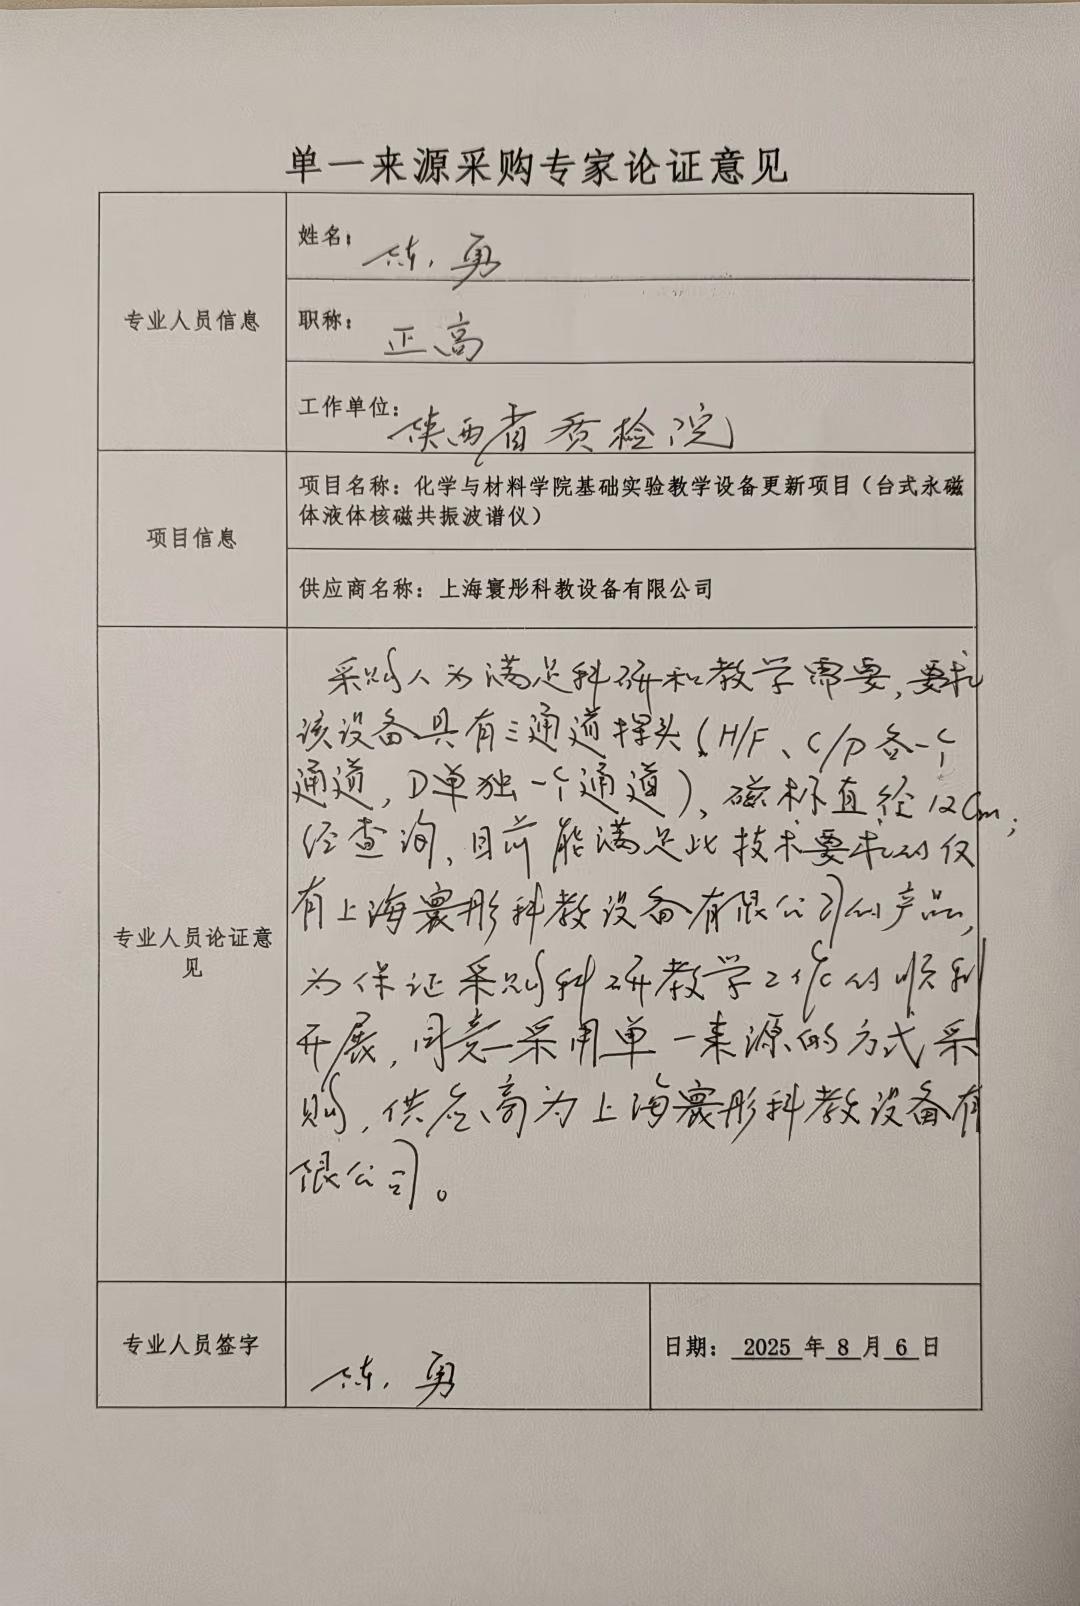 单一来源采购专家论证意见
专业人员信息
姓名：陈勇
职称：正高
工作单位：陕西省质检院
项目信息
项目名称：化学与材料学院基础实验教学设备更新项目（台式永磁
体液体核磁共振波谱仪）
供应商名称：上海寰彤科教设备有限公司
专业人员论证意
见
采购人为满足科研和教学需要，要求
该设备具有三通道探头（H/F、C/P各一个
通道，D单独一个通道）、磁标直径12cm；
经查询，目前能满足此技术要求的仅
有上海寰彤科教设备有限公司的产品，
为保证采购科研教学工作的顺利
开展，同意采用单一来源的方式采
购，供应商为上海寰彤科教设备有
限公司。
专业人员签字
陈勇
日期：2025年8月6日